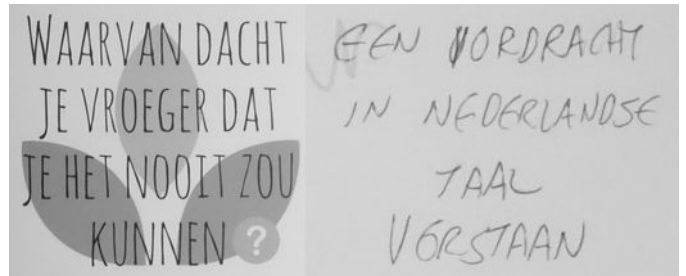 WAARVAN DACHT
JE VROEGER DAT
JE HET NOOIT ZOU
KUNNEN ?
EEN VORDRACHT
IN NEDERLANDSE
TAAL
VERSTAAN